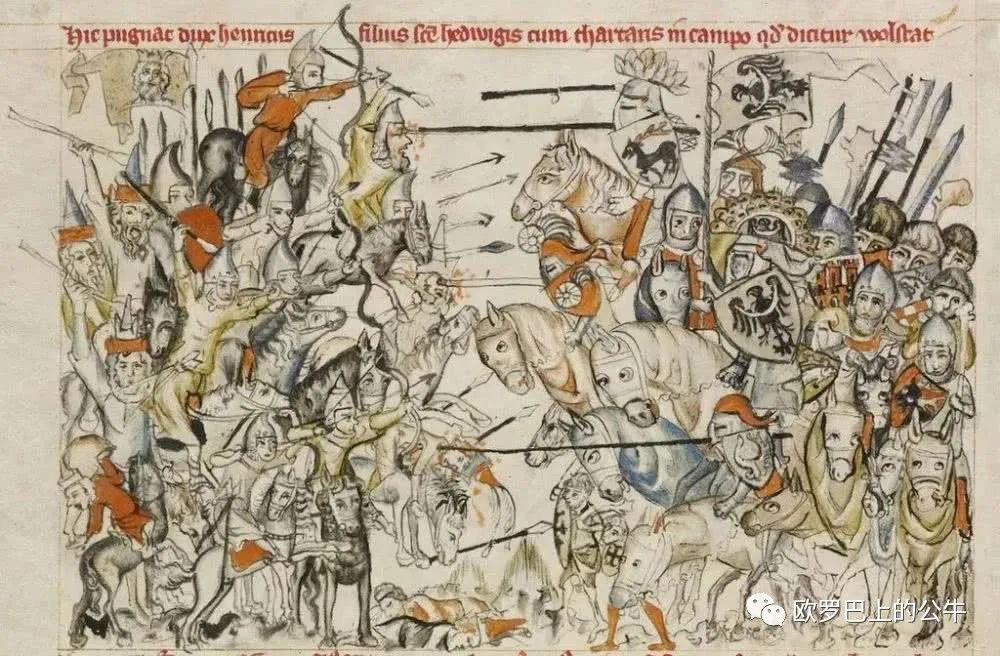 Hic pugnat dux henricus filius scē hedwigis cum thartaris in campo qd dicitur wolstat
欧罗巴上的公牛